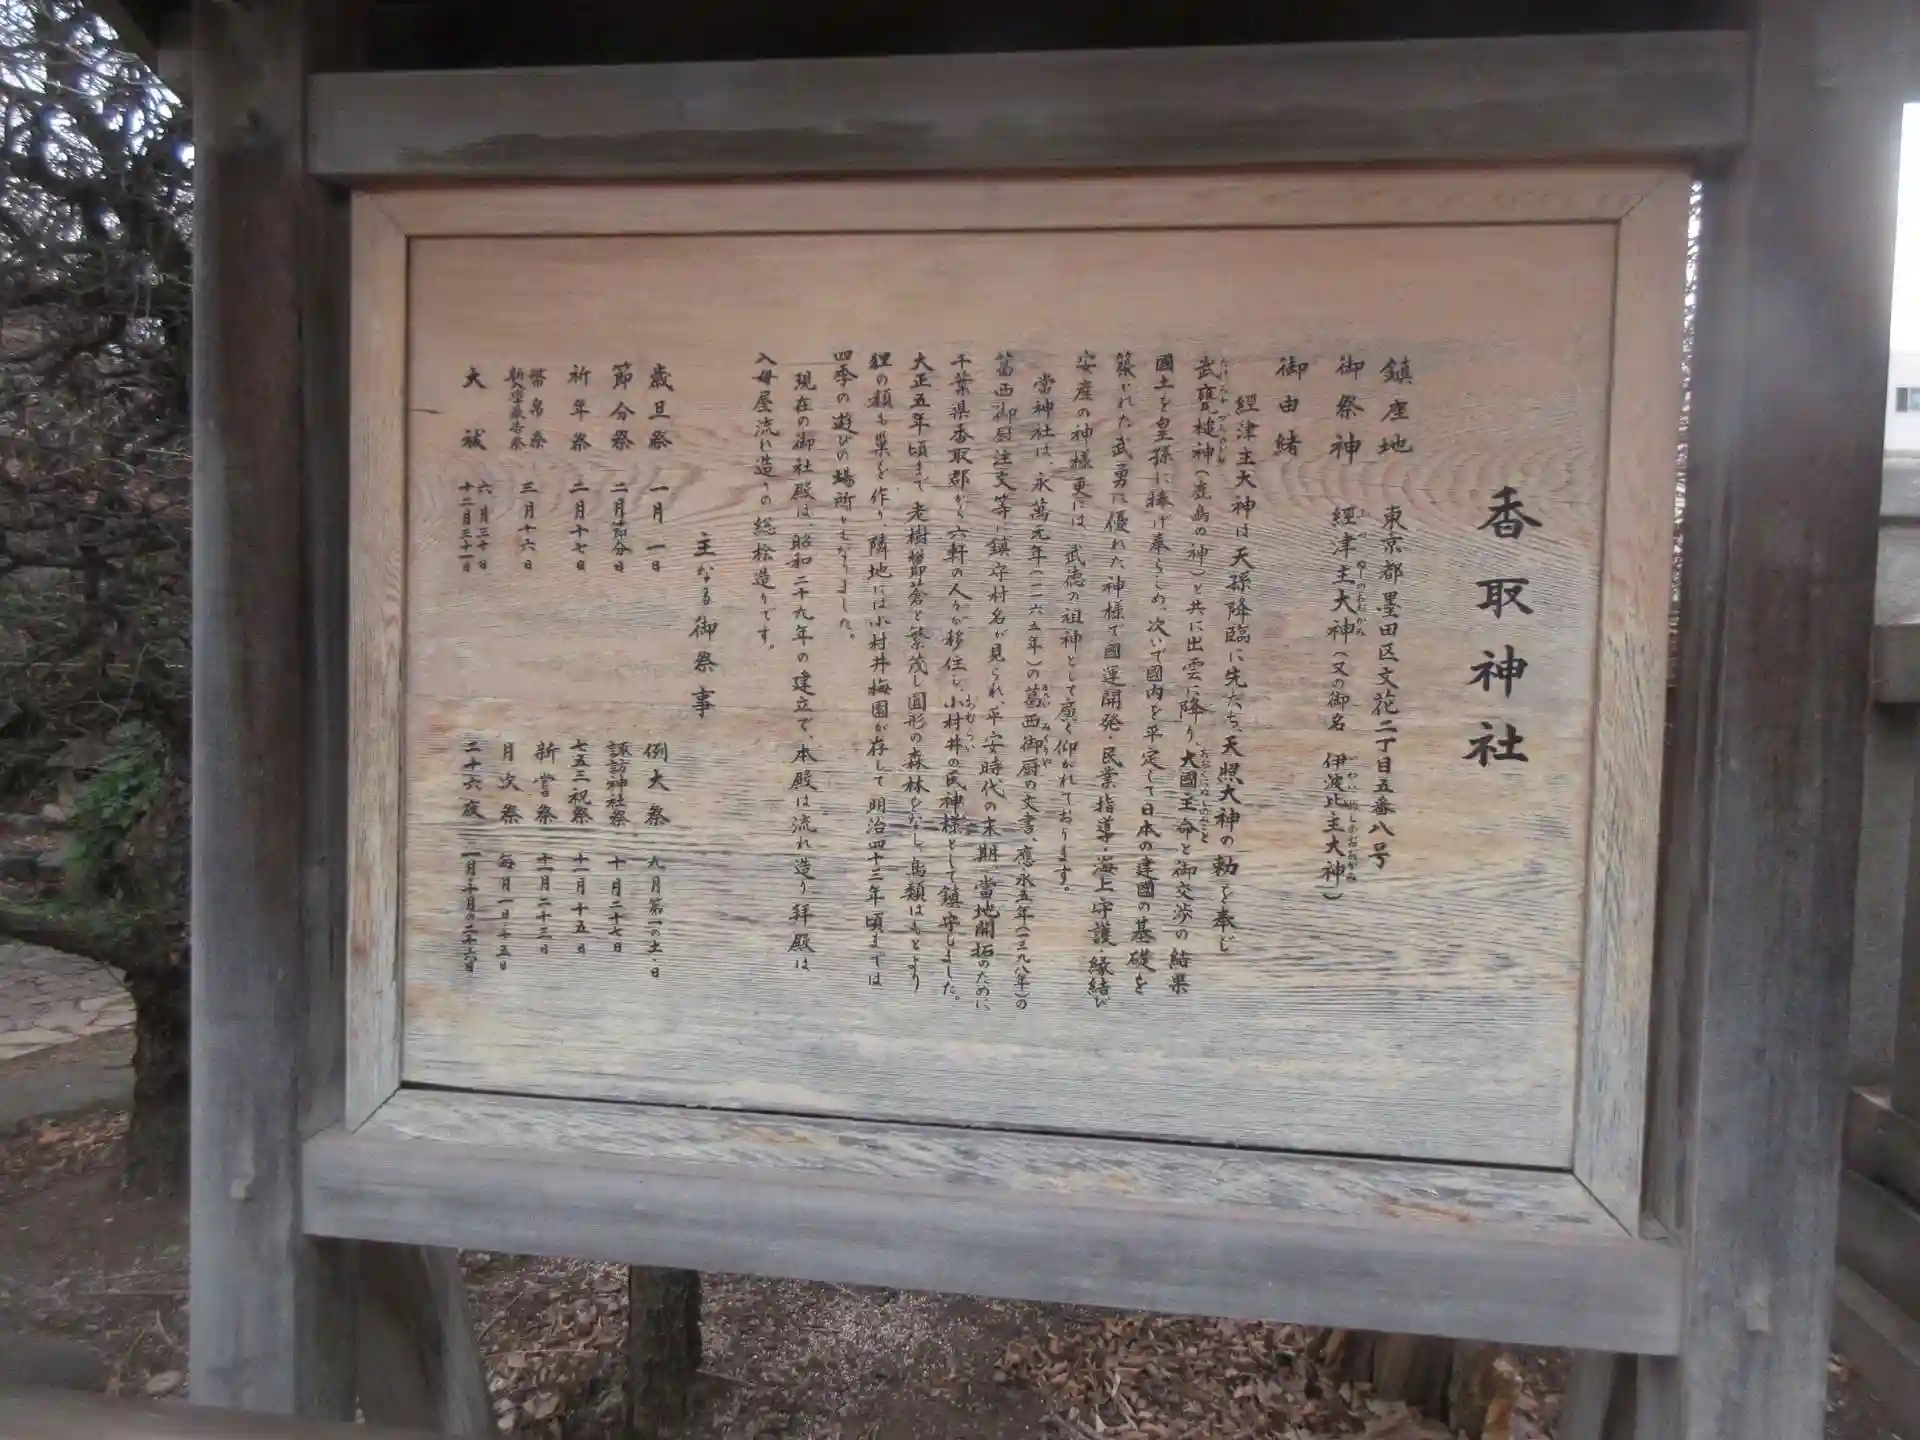 香取神社
鎮座地　東京都墨田区文花二丁目五番八号
御祭神　經津主大神（又の御名　伊波比主大神）
御由緒
經津主大神は天孫降臨に先だち、天照大神の勅を奉じ
武甕槌神（鹿島の神）と共に出雲に降り、大國主命と御交渉の結果
國土を皇孫に捧げ奉らしめ、次いで國内を平定して日本の建國の基礎を
築かれた武勇に優れた神様で國運開発・民業指導・海上守護・縁結び
安産の神様更には、武徳の祖神として広く仰がれております。
當神社は、永萬元年（一一六五年）の葛西御厨の文書、應永五年（一三九八年）の
葛西御厨注文等に鎮守村名が見られ、平安時代の末期、當地開拓のために
千葉県香取郡から六軒の人々が移住し、小村井の氏神様として鎮守しました。
大正五年頃まで老樹鬱蒼と繁茂し圓形の森林をなして鳥類はもとより
狸の類も巣を作り、隣地には小村井梅園が存して明治四十三年頃までは
四季の遊びの場所ともなりました。
現在の御社殿は、昭和二十九年の建立で、本殿は流れ造り、拝殿は
入母屋流れ造りの総桧造りです。
主なる御祭事
歳旦祭　一月一日
節分祭　二月節分日
祈年祭　二月十七日
幣帛祭　三月十六日
大祓　六月三十日
十二月三十一日
例大祭　九月第一の土・日
諏訪神社祭　十月二十七日
七五三祝祭　十一月十五日
新嘗祭　十一月二十三日
月次祭　毎月一日十五日
二十六夜